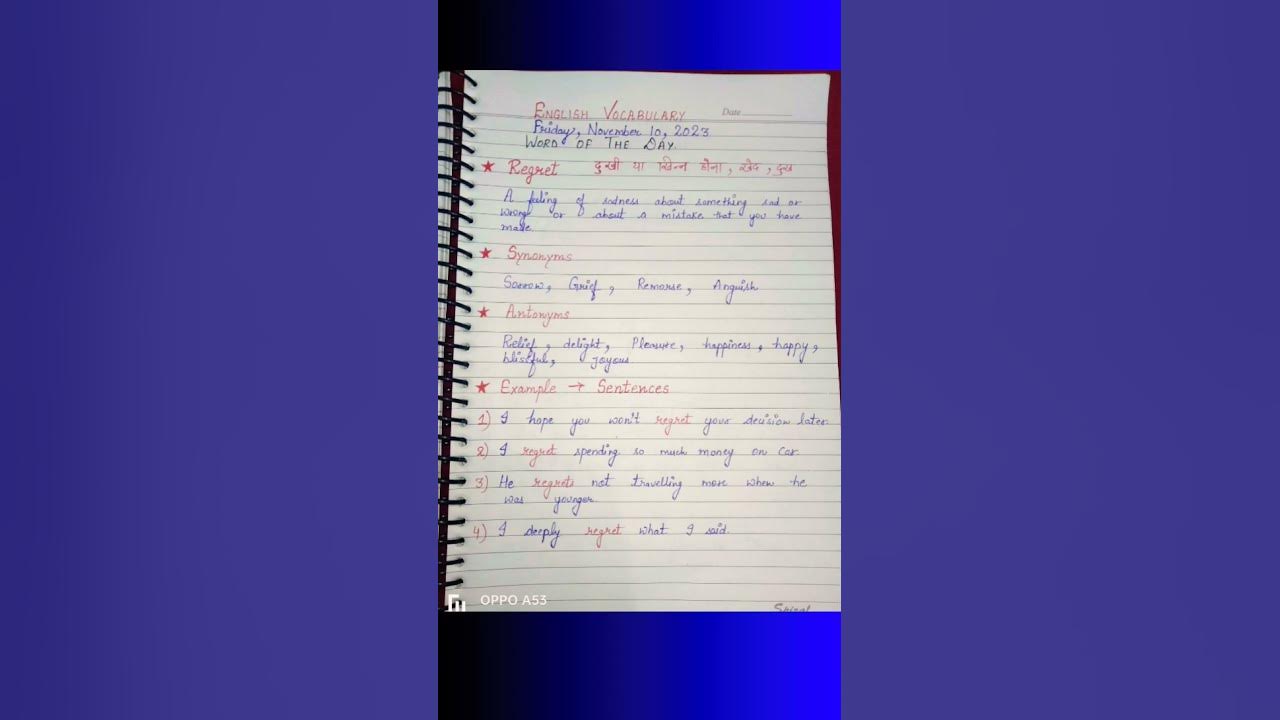 ENGLISH VOCABULARY
Date
Friday, November 10, 2023
WORD OF THE DAY
★ Regret दुखी या खिन्न होना, खेद, दुख
A feeling of sadness about something sad or
wrong or about a mistake that you have
made.
★ Synonyms
Sorrow, Grief, Remorse, Anguish
★ Antonyms
Relief, delight, Pleasure, happiness, happy,
blissful, Joyous
★ Example → Sentences
1) I hope you won't regret your decision later
2) I regret spending so much money on car.
3) He regrets not travelling more when he
was younger.
4) I deeply regret what I said.
OPPO A53
Spiral